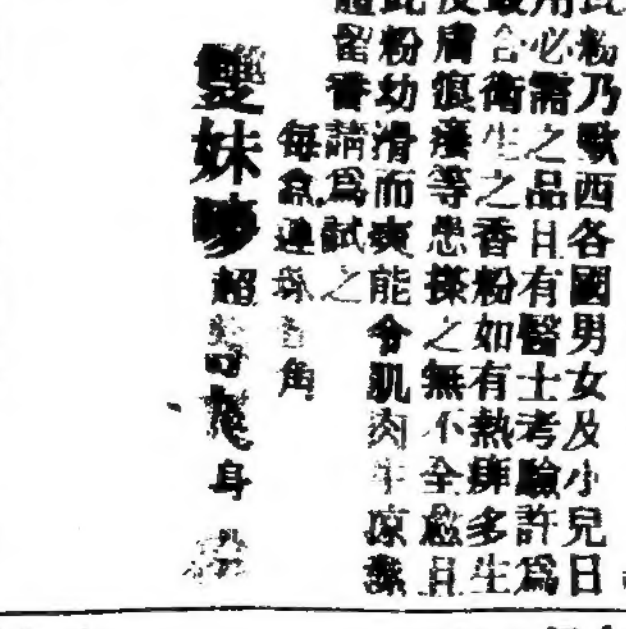 此粉乃歐西各國男女及小兒日
用必需之品且有醫士考驗許爲
最合衛生之香粉如有熱痱多生
皮膚痕癢等患搽之無不全愈且
此粉幼滑而爽能令肌肉生凉兼
體留香請爲試之
每盒連角
雙妹嘜超爽身粉